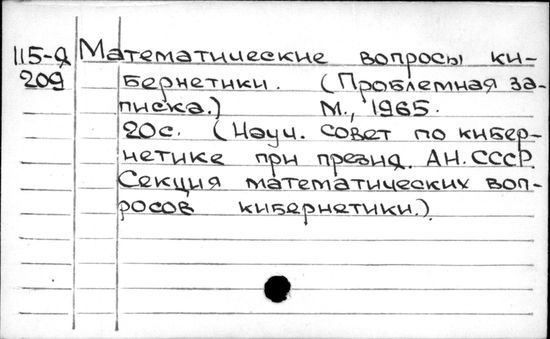 115-Я Математические вопросы ки-
209 бернетики. (Проблемная за-
писка.) М., 1965.
20с. (Науч. совет по кибер-
нетике при презид. АН. СССР.
Секция математических воп-
росов кибернетики.).